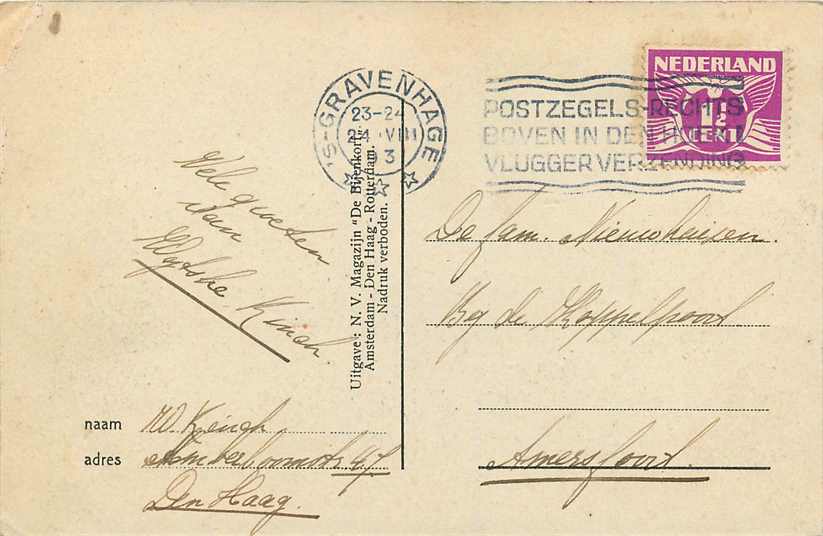 'S-GRAVENHAGE
23-24
24 VIII
3
POSTZEGELS RECHTS
BOVEN IN DEN HOEK!
VLUGGER VERZENDING
NEDERLAND
1½
CENT
Vele groeten
van
Wytske Kinch.
Uitgave: N. V. Magazijn "De Bijenkorf,,
Amsterdam - Den Haag - Rotterdam.
Nadruk verboden.
De fam. Nieuwhuizen.
Bij de Koppelpoort
Amersfoort.
naam W Kinch
adres 47
Den Haag.